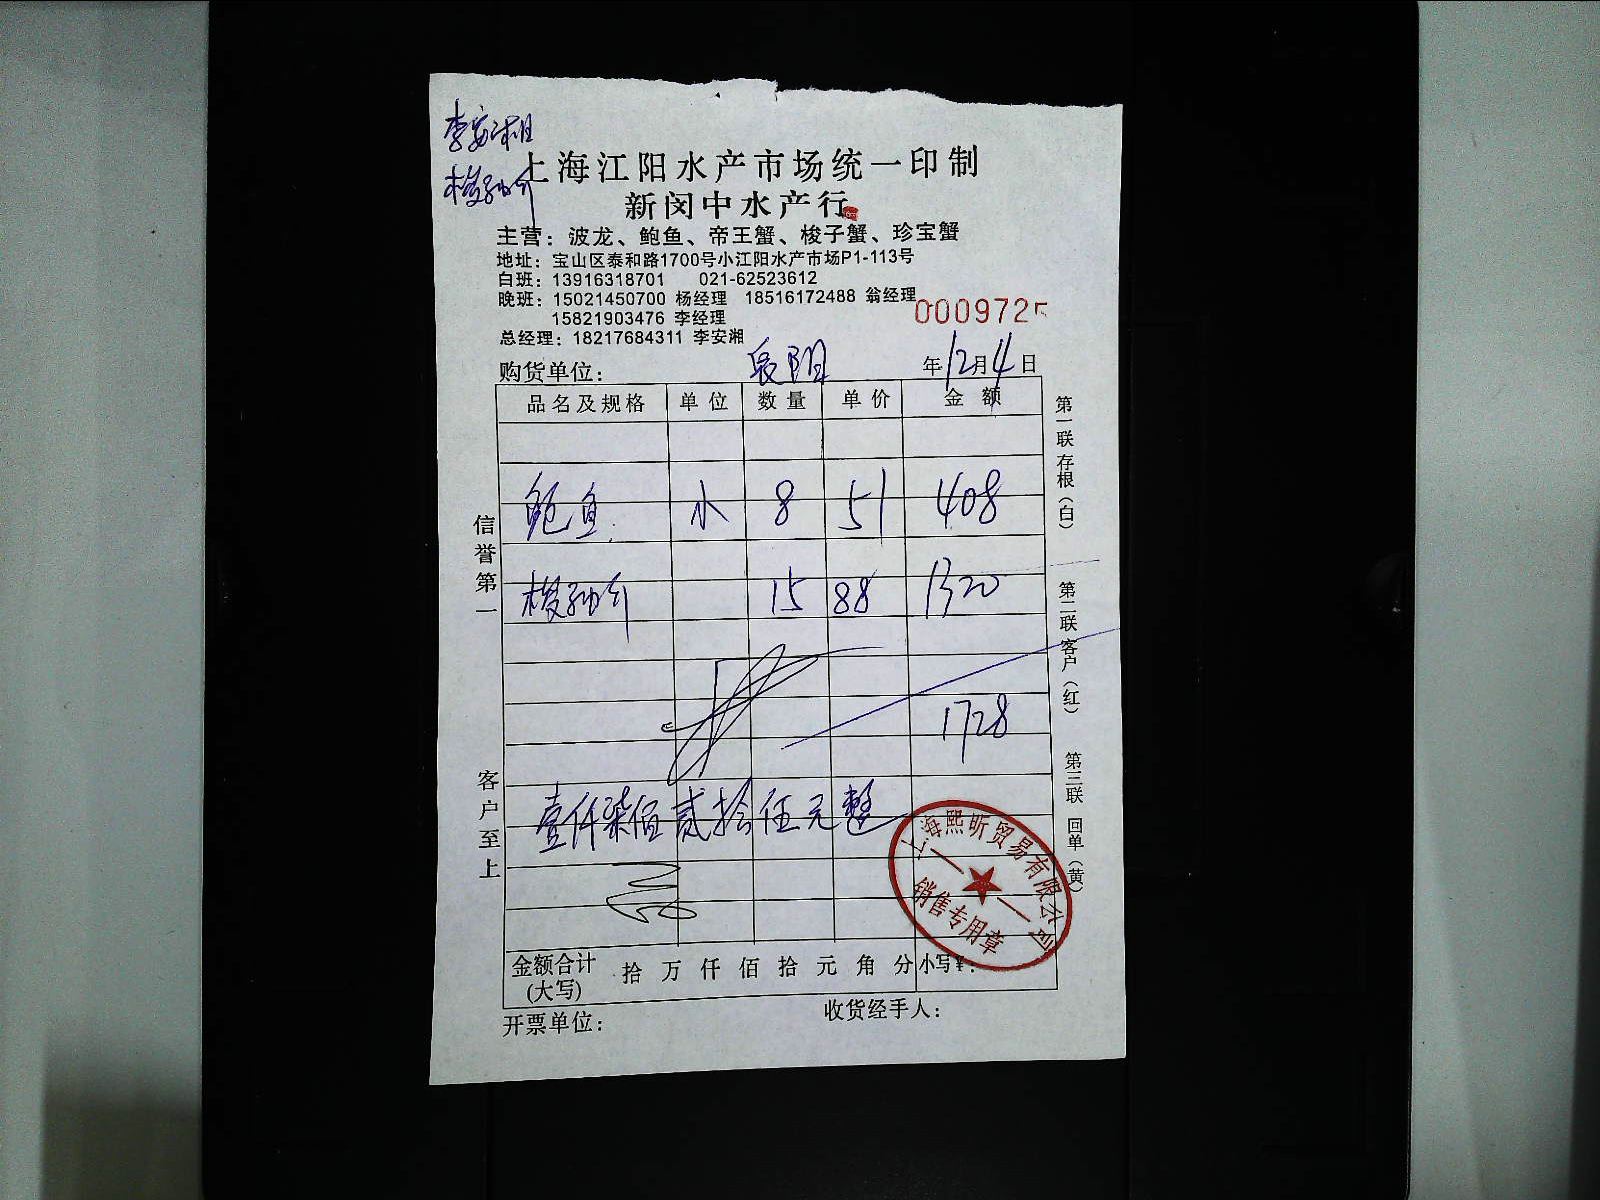 李安湘
梭子蟹
上海江阳水产市场统一印制
新闵中水产行
主营：波龙、鲍鱼、帝王蟹、梭子蟹、珍宝蟹
地址：宝山区泰和路1700号小江阳水产市场P1-113号
白班：13916318701 021-62523612
晚班：15021450700 杨经理 18516172488 翁经理
15821903476 李经理
0009725
总经理：18217684311 李安湘
购货单位： 年12月4日
品名及规格 单位 数量 单价 金额
鲍鱼 小 8 51 408
15 88 1320
1728
壹仟柒佰贰拾伍元整
金额合计(大写) 拾 万 仟 佰 拾 元 角 分 小写¥：
开票单位： 收货经手人：
信誉第一
客户至上
第一联 存根（白）
第二联 客户（红）
第三联 回单（黄）
上海熙昕贸易有限公司
销售专用章